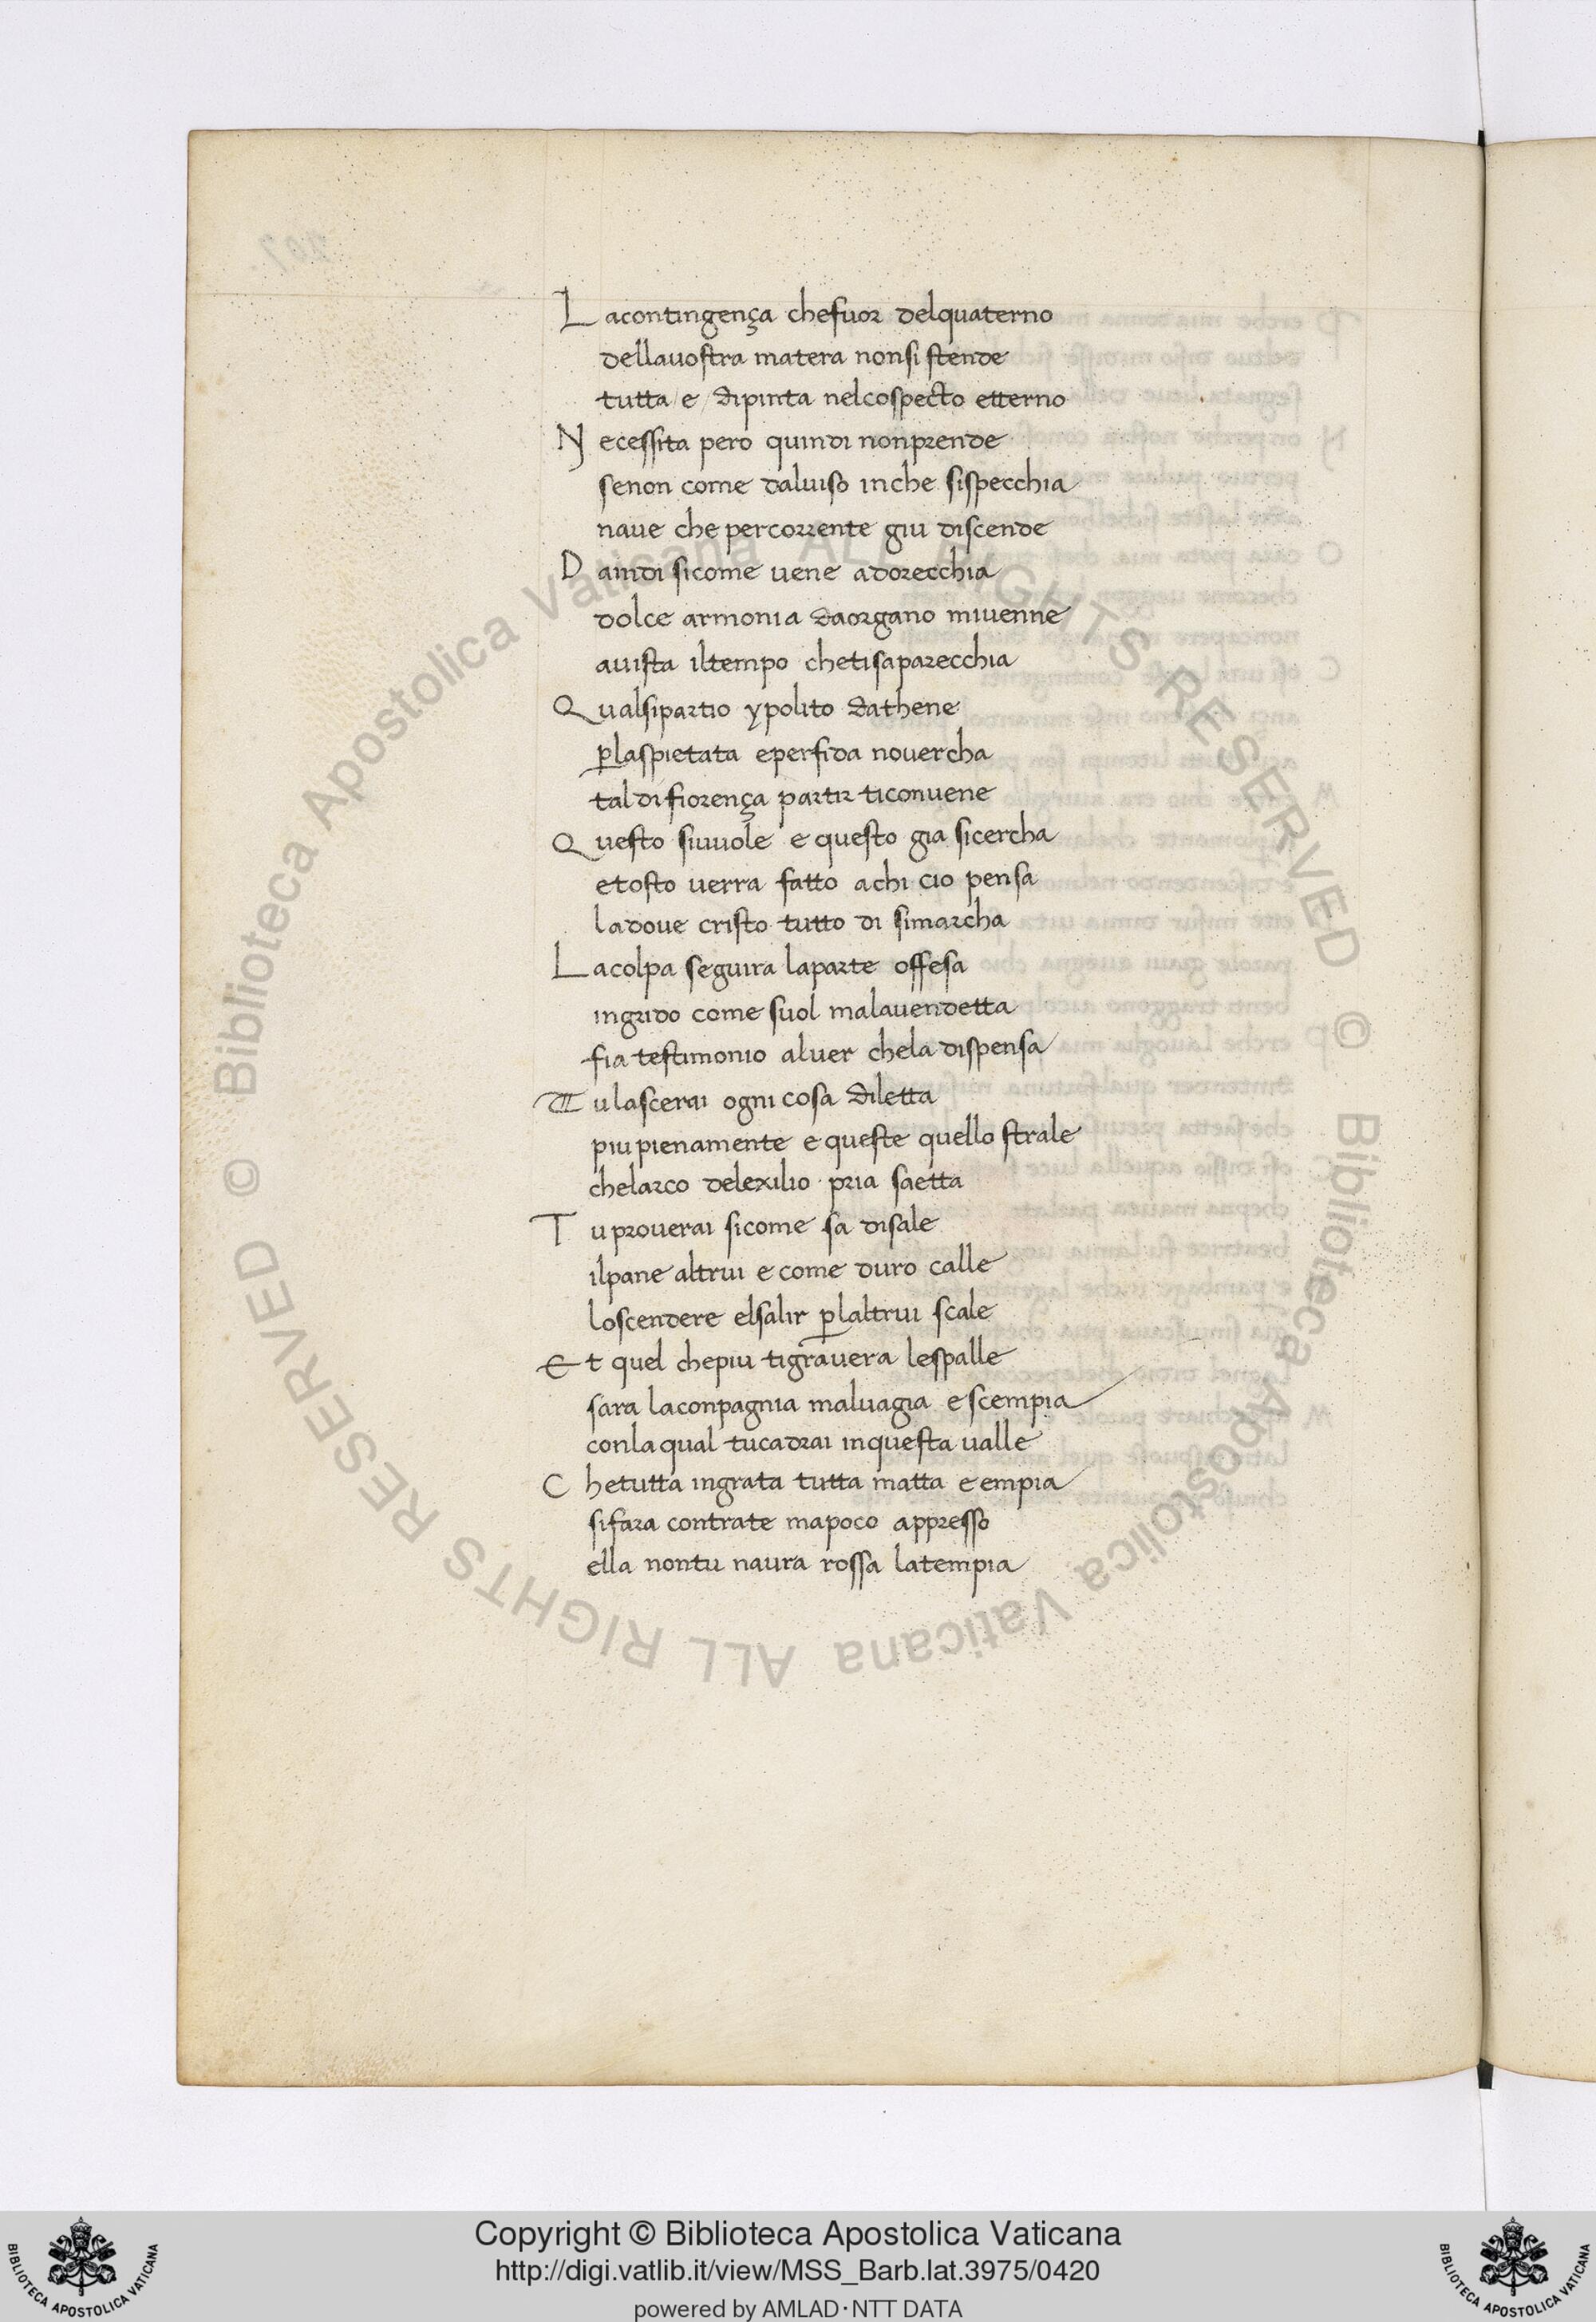 L acontingença chefuor delquaterno
dellauostra matera nonsi stende
tutta / e / dipinta nelcospecto etterno
N ecessita pero quindi nonprende
senon come daluiso inche sispecchia
naue che percorrente giu discende
D aindi sicome uene adorecchia
dolce armonia daorgano miuenne
auista iltempo chetisaparecchia
Q ualsipartio ypolito dathene
ꝑlaspietata eperfida nouercha
tal di fiorença partir ticonuene
Q uesto siuuole e questo gia sicercha
etosto uerra fatto achi cio pensa
ladoue cristo tutto di simarcha
L acolpa seguira laparte offesa
ingrido come suol malauendetta
fia testimonio aluer chela dispensa
T u lascerai ogni cosa diletta
piu pienamente e queste quello strale
chelarco delexilio pria saetta
T u prouerai sicome sa disale
ilpane altrui e come duro calle
loscendere elsalir ꝑlaltrui scale
E t quel chepiu tigrauera lespalle
sara laconpagnia maluagia e scempia
conla qual tucadrai inquesta ualle
C hetutta ingrata tutta matta e empia
sifara contrate mapoco appresso
ella nontu naura rossa latempia
© Biblioteca Apostolica Vaticana ALL RIGHTS RESERVED © Biblioteca Apostolica Vaticana ALL RIGHTS RESERVED
BIBLIOTECA APOSTOLICA VATICANA
Copyright © Biblioteca Apostolica Vaticana
http://digi.vatlib.it/view/MSS_Barb.lat.3975/0420
powered by AMLAD·NTT DATA
BIBLIOTECA APOSTOLICA VATICANA